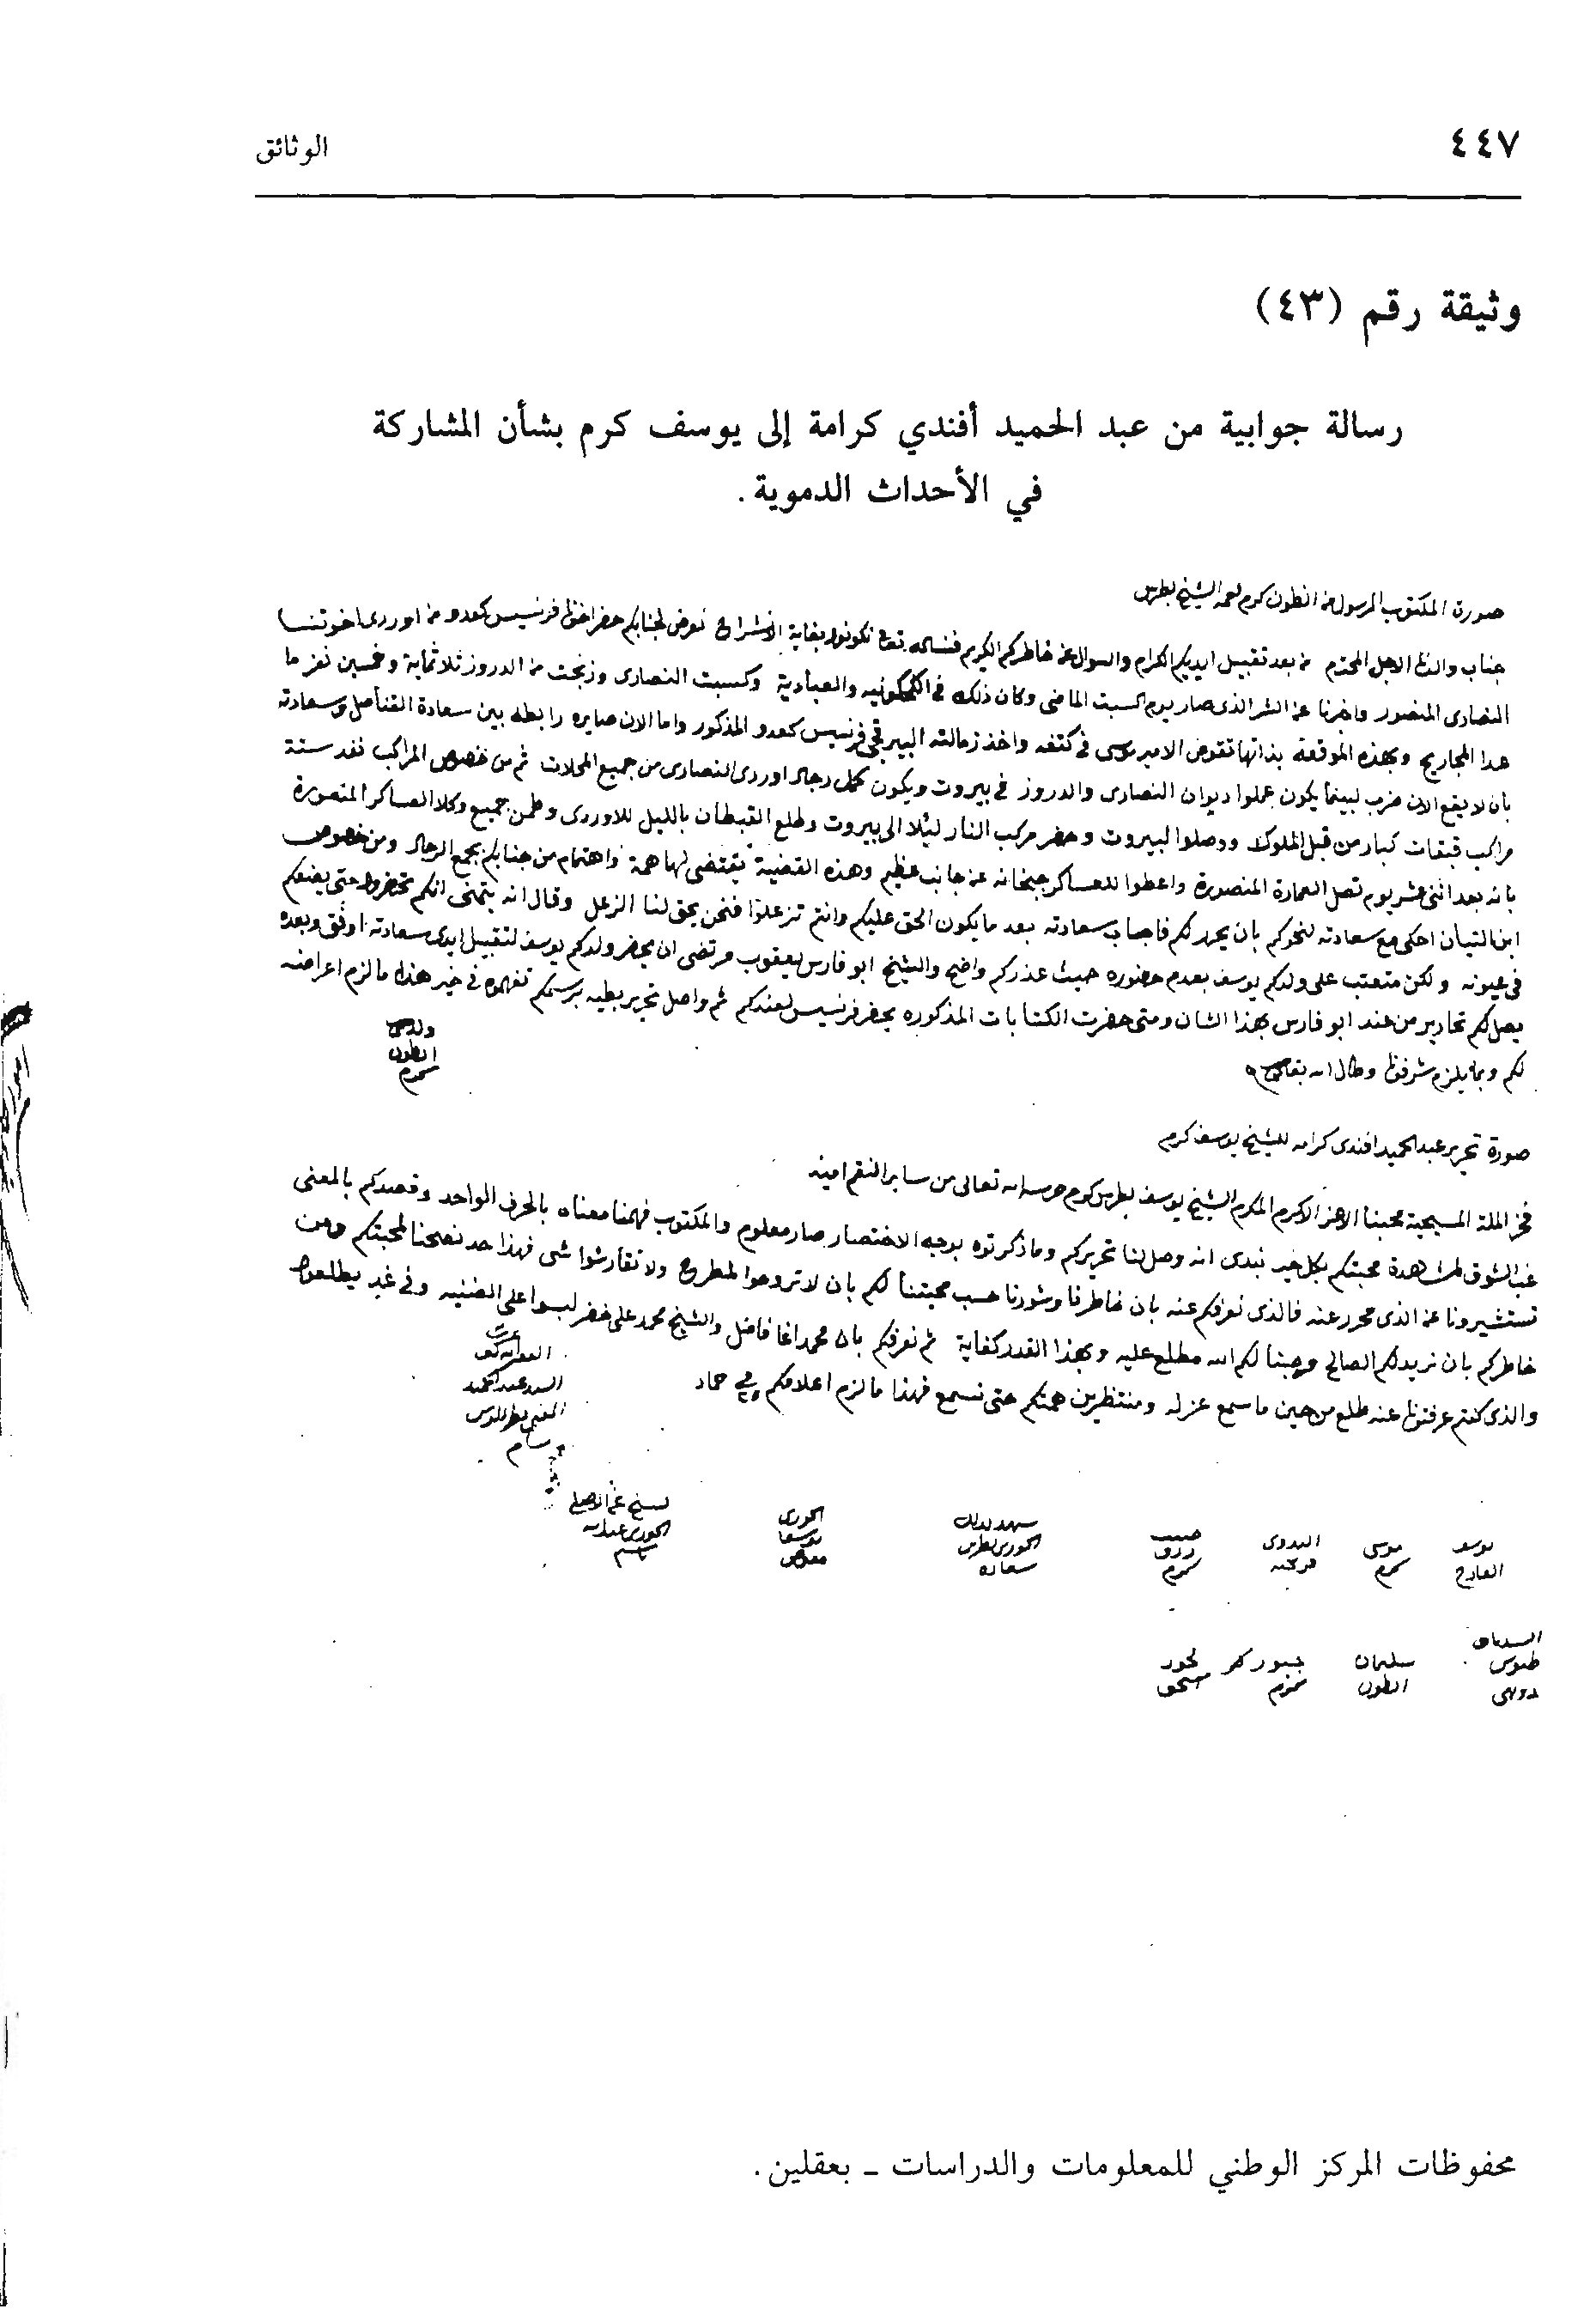 ٤٤٧
الوثائق
وثيقة رقم (٤٣)
رسالة جوابية من عبد الحميد أفندي كرامة إلى يوسف كرم بشأن المشاركة
في الأحداث الدموية .
صورة المكتوب المرسول من انطون كرم لعمه الشيخ بطرس
جناب والدنا الاجل المحترم من بعد تقبيل ايديكم الكرام والسوال عن خاطركم الكريم فنساله تعالى تكونوا بغاية الانشراح نعرض لجنابكم حضر اخونا فرنسيس كعدو من اوردى اخوتنا
النصارى المنصور واخبرنا عن الشر الذى صار يوم السبت الماضى وكان ذلك فى والعبادية وكسبت النصارى وذبحت من الدروز ثلاثماية وخمسين نفر ما
عدا المجاريح وبهذه الموقعة بذاتها تقوص الامير موسى فى كتفه واخذ زمالته البيرقجى فرنسيس كعدو المذكور واما الان صايره رابطه بين سعادة القناصل وسعادته
بان لا يقع الان ضرب لبينما يكون عملوا ديوان النصارى والدروز فى بيروت ويكون كمل رجال اوردى النصارى من جميع المحلات ثم من خصوص المراكب نفد ستة
مراكب قبقات كبار من قبل الملوك ووصلوا لبيروت وحضر مركب النار ليلا الى بيروت وطلع القبطان بالليل للاوردى وطمن جميع وكلا العساكر المنصورة
بانه بعد اثنى عشر يوم تصل العمارة المنصورة واعطوا للعساكر جبخانه عن جانب عظيم وهذه القضية يقتضى لها همة واهتمام من جنابكم بجمع الرجال ومن خصوص
ابن التيان احكى مع سعادته لنحوكم بان يحرر لكم فاجاب سعادته بعد ما يكون الحق عليكم وانتم تزعلوا فنحن يحق لنا الزعل وقال انه يتمنى انكم تحضروا حتى يضعكم
فى عيونه ولكن متعتب على ولدكم يوسف بعدم حضوره حيث عذركم واضح والشيخ ابو فارس يعقوب مرتضى ان يحضر ولدكم يوسف لتقبيل ايدى سعادته اوفق وبعده
يصلكم تحارير من عند ابو فارس بهذا الشان ومتى حضرت الكتابات المذكوره يحضر فرنسيس لعندكم ثم واصل تحرير بطيه برسمكم تفهموه فى خير هذا ما لزم اعراضه
لكم وبما يلزم شرفونا وطال الله بقاكم
ولدكم
انطون
كرم
صورة تحرير عبد الحميد افندى كرامه للشيخ يوسف كرم
فخر الملة المسيحية محبنا الاعز الاكرم المكرم الشيخ يوسف بطرس كرم حرسه الله تعالى من ساير النقم امين
غب الشوق لمشاهدة محبتكم بكل خير نبدى انه وصل لنا تحريركم وما ذكرتوه بوجه الاختصار صار معلوم والمكتوب فهمنا معناه بالحرف الواحد وقصدكم بالمعنى
تستشيرونا عن الذى محرر عنه فالذى نعرفكم عنه بان خاطرنا وشورنا حسب محبتنا لكم بان لا تروحوا لمطرح ولا تقارشوا شى فهذا حد نصحنا لمحبتكم ومن
خاطركم بان نريد لكم الصالح ومحبتنا لكم الله مطلع عليه وبهذا القدر كفاية ثم نعرفكم بان محمد اغا فاضل والشيخ محمد على خضر لبسوا على الضنيه وفى غد يطلعوا
والذى كنتم عرفتونا عنه طلع من حين ما سمع عزله ومنتظرين همتكم حتى نسمع فهذا ما لزم اعلامكم
السيد عبد الحميد
المفتى بطرابلوس
الخورى
يوسف
معوض
الخورى بطرس
سعاده
حبيب
رزق
كرم
البدوى
فرنجيه
موسى
كرم
يوسف
طنوس
سليمان
انطون
جبور
محفوظات المركز الوطني للمعلومات والدراسات ـ بعقلين .